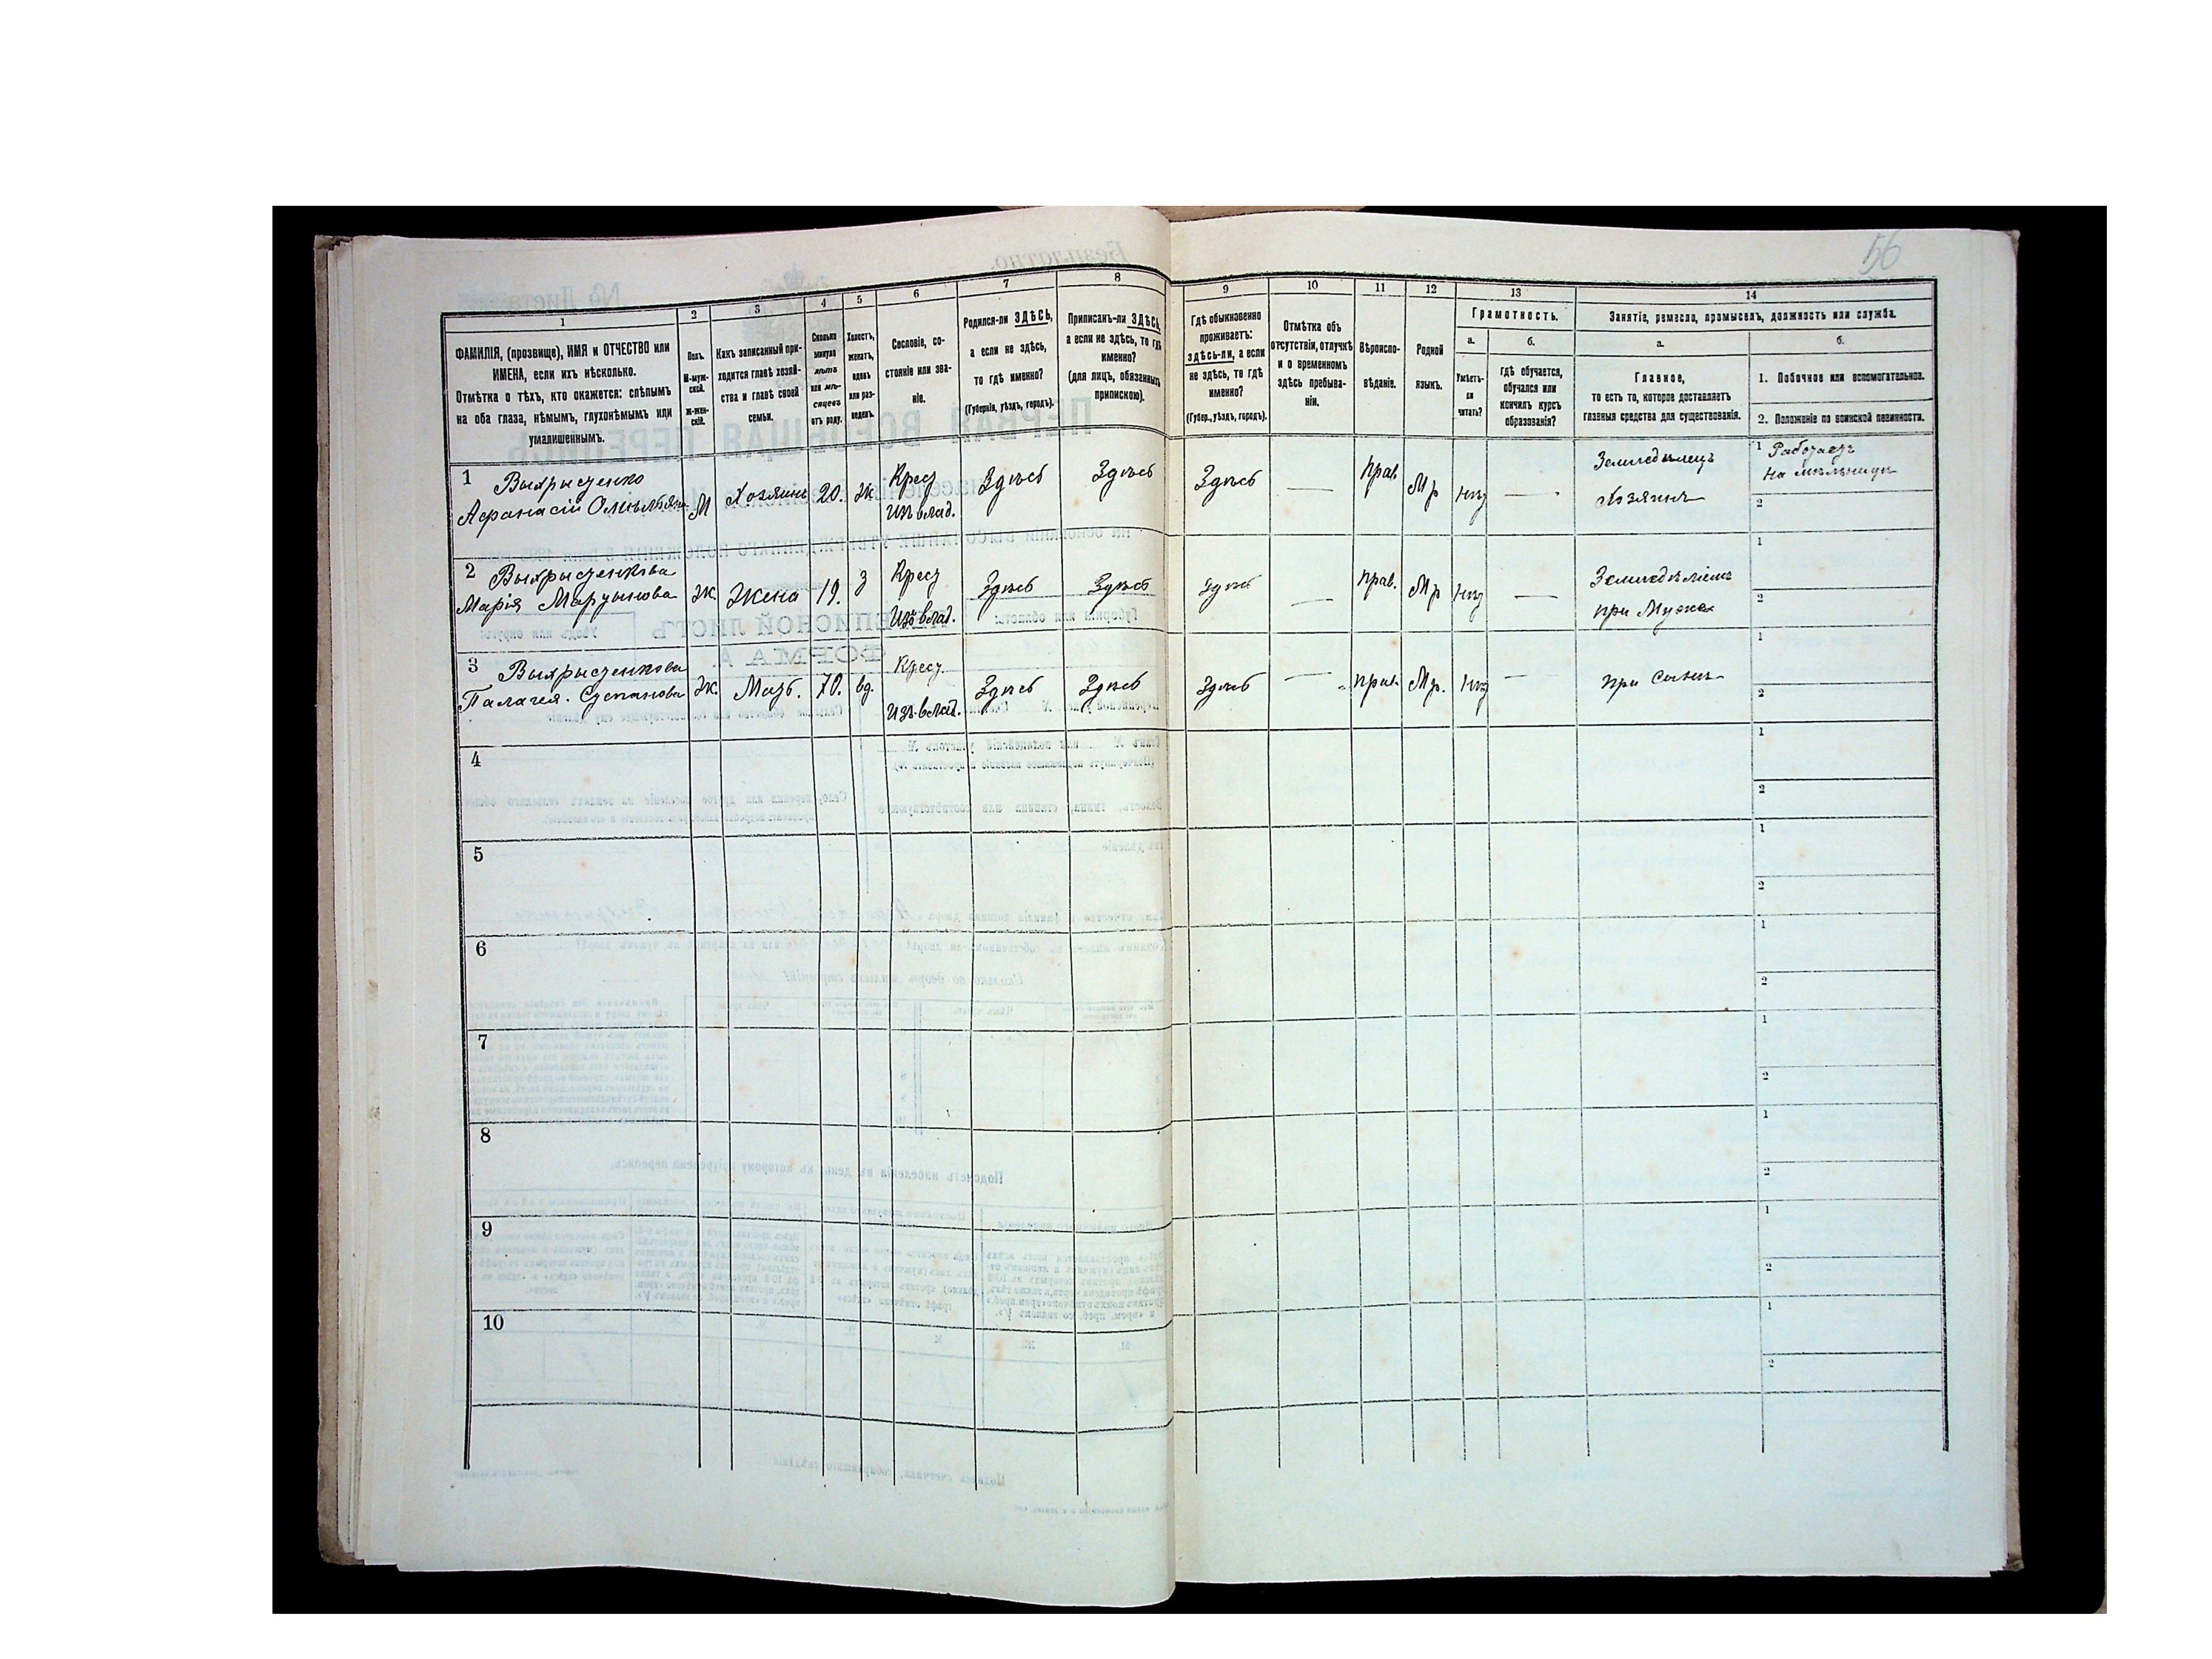 56
1
2
3
4
5
6
7
8
9
10
11
12
13
14
ФАМИЛІЯ, (прозвище), ИМЯ и ОТЧЕСТВО или
ИМЕНА, если ихъ нѣсколько.
Отмѣтка о тѣхъ, кто окажется: слѣпымъ
на оба глаза, нѣмымъ, глухонѣмымъ или
умалишеннымъ.
Полъ.
М-муж-
ской.
Ж-жен-
скій.
Какъ записанный при-
ходится главѣ хозяй-
ства и главѣ своей
семьи.
Сколько
минуло
лѣтъ
или мѣ-
сяцевъ
отъ роду.
Холостъ,
женатъ,
вдовъ
или раз-
веденъ.
Сословіе, со-
стояніе или зва-
ніе.
Родился-ли ЗДѢСЬ,
а если не здѣсь,
то гдѣ именно?
(Губернія, уѣздъ, городъ).
Приписанъ-ли ЗДѢСЬ,
а если не здѣсь, то гдѣ
именно?
(для лицъ, обязанныхъ
припискою).
Гдѣ обыкновенно
проживаетъ:
здѣсь-ли, а если
не здѣсь, то гдѣ
именно?
(Губер., уѣздъ, городъ).
Отмѣтка объ
отсутствіи, отлучкѣ
и о временномъ
здѣсь пребыва-
ніи.
Вѣроиспо-
вѣданіе.
Родной
языкъ.
Грамотность.
а.
Умѣетъ-
ли
читать?
б.
гдѣ обучается,
обучался или
кончилъ курсъ
образованія?
Занятіе, ремесло, промыселъ, должность или служба.
а.
Главное,
то есть то, которое доставляетъ
главныя средства для существованія.
б.
1. Побочное или вспомогательное.
2. Положеніе по воинской повинности.
1 Выхрыстенко
Афанасій Омельянов М Хозяинъ 20. Ж Крест Изъ влад. Здѣсь Здѣсь Здѣсь — Прав. Мр нѣт — Земледѣлецъ
Хозяинъ
1 Работаетъ
на мельницѣ
2
2 Выхрыстенкова
Марія Мартынова Ж. Жена 19. З Крест Изъ влад. Здѣсь Здѣсь Здѣсь — Прав. Мр нѣт — Земледѣліемъ
при Мужѣ
1
2
3 Выхрыстенкова
Палагея. Степанова Ж. Мать. 70. вд. Крест. Изъ влад. Здѣсь Здѣсь Здѣсь — Прав. Мр. нѣт — при Сынѣ
1
2
4
1
2
5
1
2
6
1
2
7
1
2
8
1
2
9
1
2
10
1
2